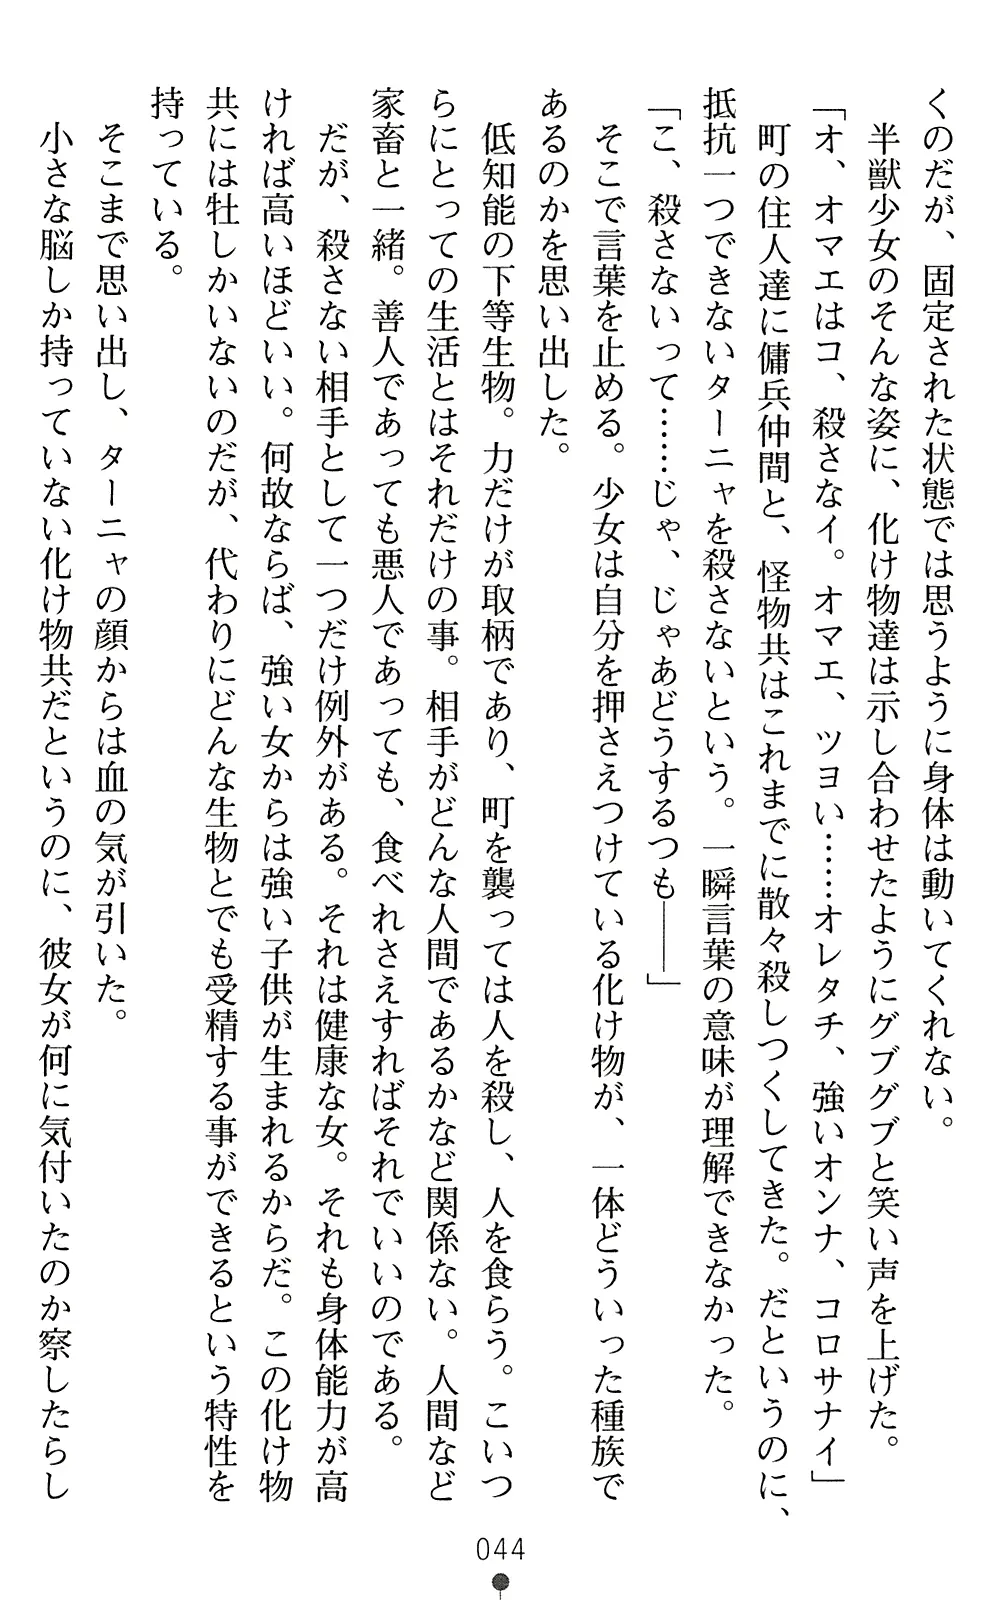 くのだが、固定された状態では思うように身体は動いてくれない。
半獣少女のそんな姿に、化け物達は示し合わせたようにグブグブと笑い声を上げた。
「オ、オマエはコ、殺さなイ。オマエ、ツヨい……オレタチ、強いオンナ、コロサナイ」
町の住人達に傭兵仲間と、怪物共はこれまでに散々殺しつくしてきた。だというのに、
抵抗一つできないターニャを殺さないという。一瞬言葉の意味が理解できなかった。
「こ、殺さないって……じゃ、じゃあどうするつも――」
そこで言葉を止める。少女は自分を押さえつけている化け物が、一体どういった種族で
あるのかを思い出した。
低知能の下等生物。力だけが取柄であり、町を襲っては人を殺し、人を食らう。こいつ
らにとっての生活とはそれだけの事。相手がどんな人間であるかなど関係ない。人間など
家畜と一緒。善人であっても悪人であっても、食べれさえすればそれでいいのである。
だが、殺さない相手として一つだけ例外がある。それは健康な女。それも身体能力が高
ければ高いほどいい。何故ならば、強い女からは強い子供が生まれるからだ。この化け物
共には牡しかいないのだが、代わりにどんな生物とでも受精する事ができるという特性を
持っている。
そこまで思い出し、ターニャの顔からは血の気が引いた。
小さな脳しか持っていない化け物共だというのに、彼女が何に気付いたのか察したらし
044